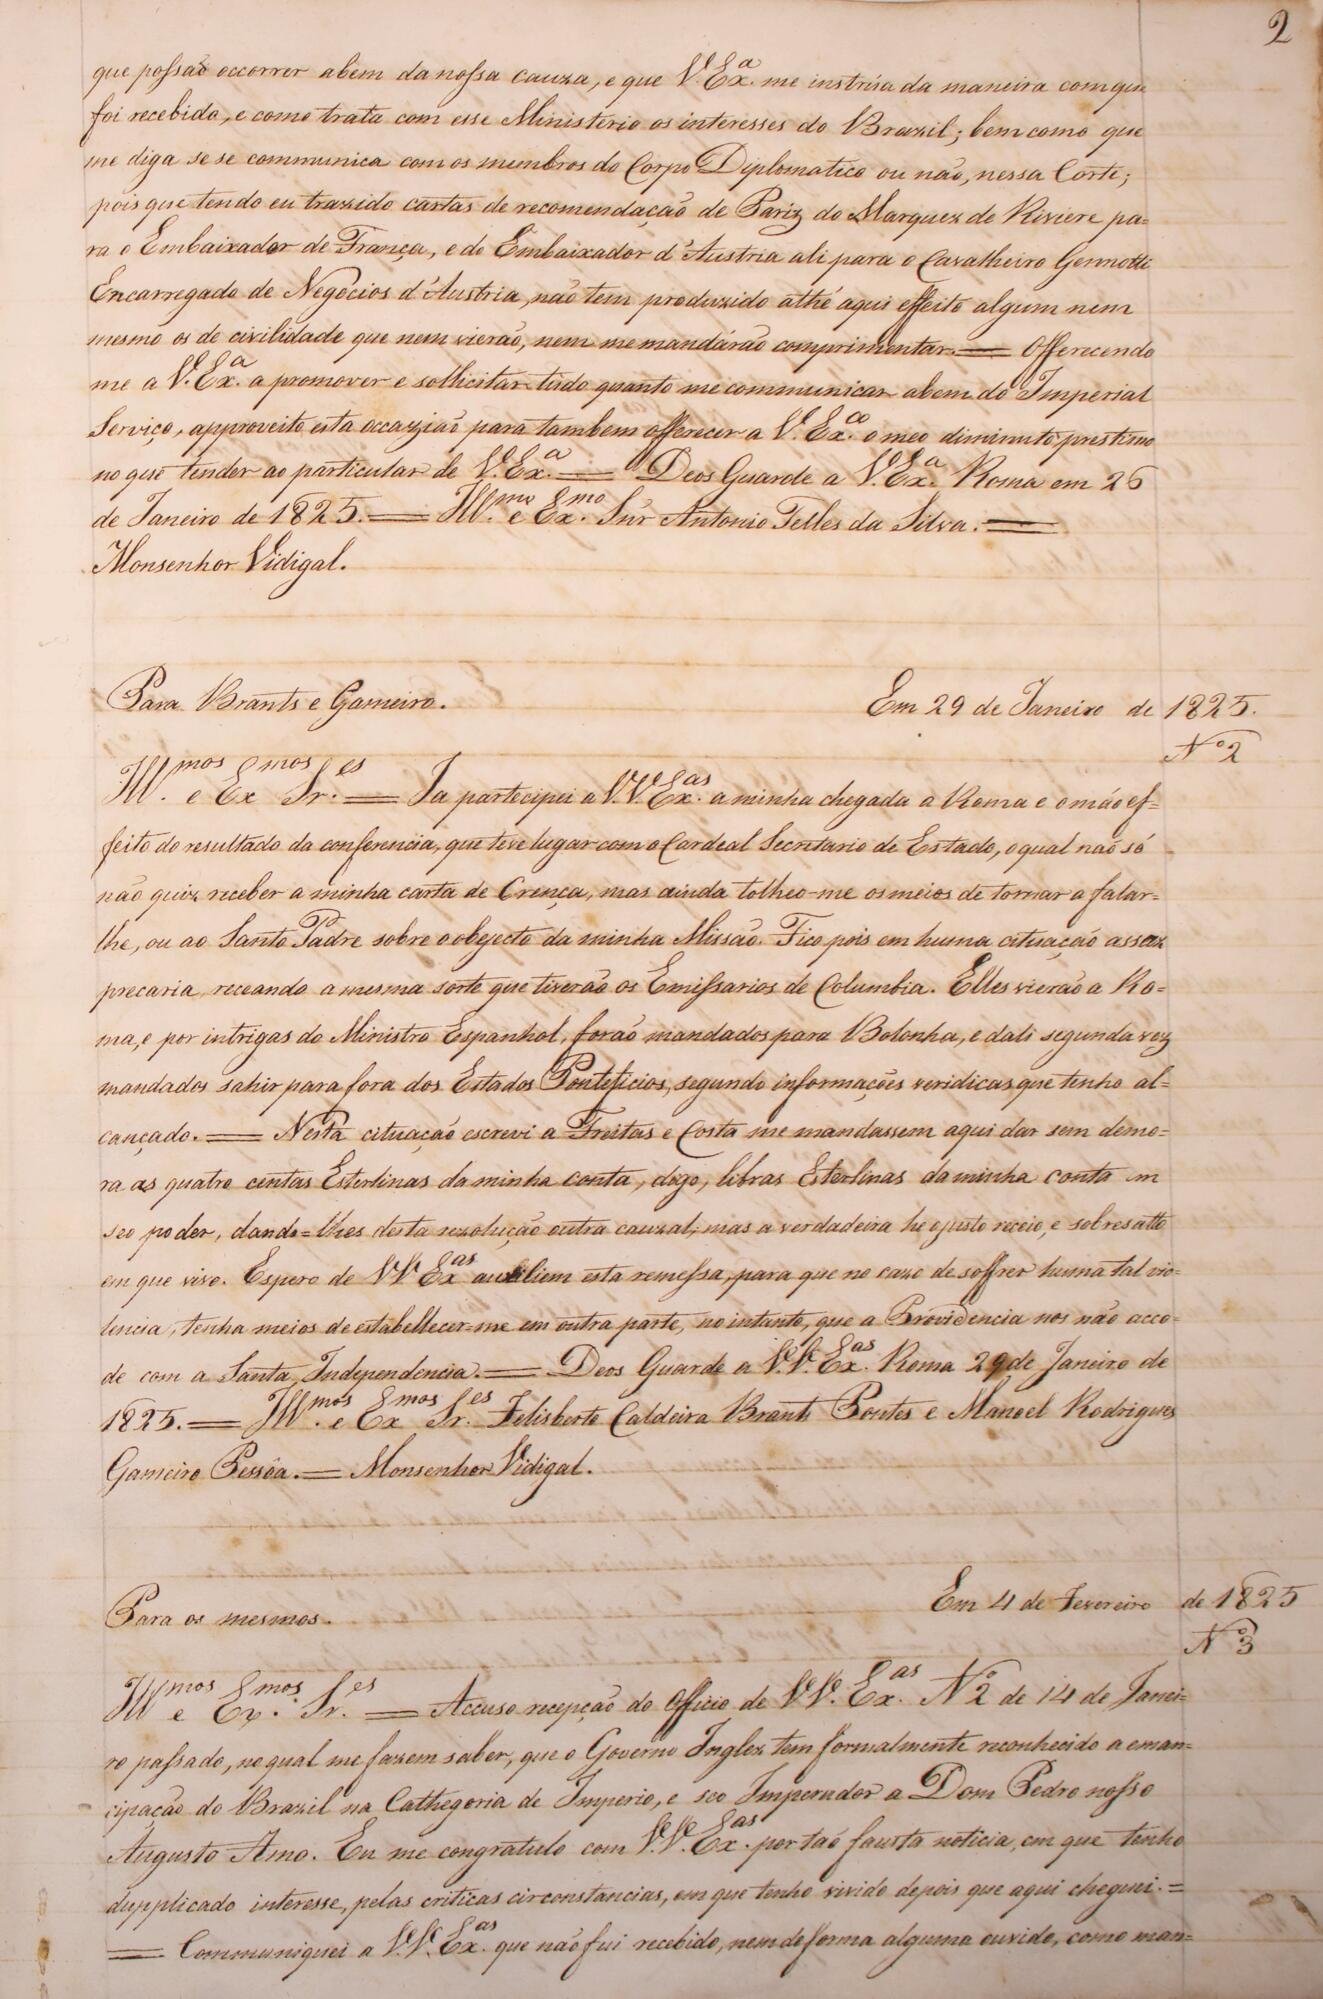 2
que possaõ occorrer abem da nossa cauza, e que V. Ex.ª me instrúa da maneira com que
foi recebido, e como trata com esse Ministerio os interesses do Brazil; bem como que
me diga se se communica com os membros do Corpo Diplomatico ou não, nessa Corte;
pois que tendo eu trazido cartas de recomendação de Pariz do Marquez de Riviere pa=
ra o Embaixador de França, e do Embaixador d'Austria ali para o Cavalheiro Gennotte
Encarregado de Negòcios d'Austria, não tem produzido athé aqui effeito algum nem
mesmo os de civilidade que nem vierão, nem me mandárão comprimentar. = Offerecendo
me a V. Ex.ª a promover e sollicitar tudo quanto me communicar abem do Imperial
Serviço, approveito esta occazião para tambem offerecer a V. Ex.co o meo diminuto prestimo
no que tender ao particular de V. Ex.ª = Deos Guarde a V. Ex.ª Roma em 26
de Janeiro de 1825. = Ill.mo e Ex.mo Snr Antonio Telles da Silva. =
Monsenhor Vidigal.
Para Brants e Gameiro. Em 29 de Janeiro de 1825.
Nº 2
Ill.mos e Ex.mos Sr.es = Ja partecipei a V.V. Ex.as a minha chegada a Roma e o máo ef=
feito do resultado da conferencia, que teve lugar com o Cardeal Secretario de Estado, o qual naõ só
não quiz receber a minha carta de Crença, mas ainda tolheo-me os meios de tornar a falar=
lhe, ou ao Santo Padre sobre o obejecto da minha Missão. Fico pois em huma cituação assaz
precaria, receando a mesma sorte que tiverão os Emissarios de Columbia. Elles vierão a Ro=
ma, e por intrigas do Ministro Espanhol, forão mandados para Bolonha, e dali segunda vez
mandados sahir para fora dos Estados Ponteficios, segundo informações veridicas que tenho al=
cançado. = Nesta cituação escrevi a Freitas e Costa me mandassem aqui dar sem demo=
ra as quatro centas Esterlinas da minha conta, digo, libras Esterlinas da minha conta em
seo poder, dando=lhes desta rezolução outra cauzal, mas a verdadeira he o justo receio, e sobresalto
em que vivo. Espero de VV Ex.as auxiliem esta remessa, para que no cazo de soffrer huma tal vio=
lencia, tenha meios de estabellecer-me em outra parte, no intanto, que a Providencia nos não acco=
de com a Santa Independencia. = Deos Guarde a V.V. Ex.as Roma 29 de Janeiro de
1825. = Ill.mos e Ex.mos Sr.es Felisberto Caldeira Brants Pontes e Manoel Rodrigues
Gameiro Pessôa. = Monsenhor Vidigal.
Para os mesmos. Em 4 de Fevereiro de 1825
Nº 3
Ill.mos e Ex.mos Sr.es = Accuso recepção do Officio de V.V. Ex.as Nº 2 de 14 de Janei=
ro passado, no qual me fazem saber, que o Governo Inglez tem formalmente reconhecido a eman=
cipação do Brazil na Cathegoria de Imperio, e seo Imperador a Dom Pedro nosso
Augusto Amo. Eu me congratulo com V.V. Ex.as por taõ fausta noticia, em que tenho
dupplicado interesse, pelas criticas circonstancias, em que tenho vivido depois que aqui cheguei. =
= Communiquei a V.V. Ex.as que não fui recebido, nem de forma alguma ouvido, como man=